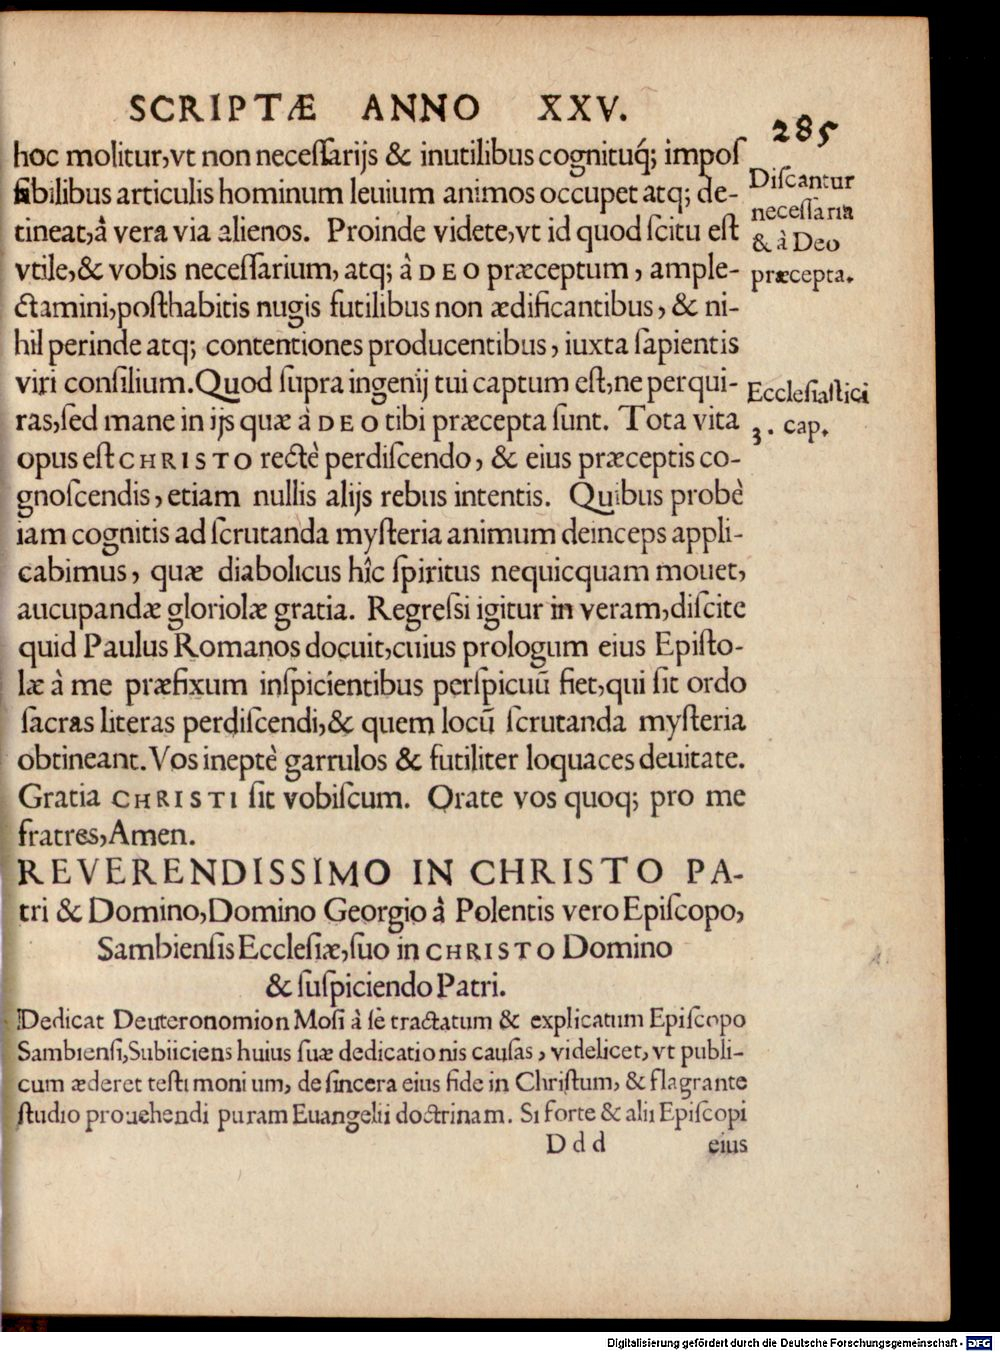 SCRIPTÆ ANNO XXV.
285
hoc molitur,vt non neceſſarijs & inutilibus cognituq́; impoſ
ſibilibus articulis hominum leuium animos occupet atq; de-
tineat,à vera via alienos. Proinde videte,vt id quod ſcitu eſt
vtile,& vobis neceſſarium, atq; à DEO præceptum, ample-
ctamini,poſthabitis nugis futilibus non ædificantibus, & ni-
hil perinde atq; contentiones producentibus, iuxta ſapientis
viri conſilium.Quod ſupra ingenij tui captum eſt,ne perqui-
ras,ſed mane in ijs quæ à DEO tibi præcepta ſunt. Tota vita
opus eſt CHRISTO rectè perdiſcendo, & eius præceptis co-
gnoſcendis, etiam nullis alijs rebus intentis. Quibus probè
iam cognitis ad ſcrutanda myſteria animum deinceps appli-
cabimus, quæ diabolicus hîc ſpiritus nequicquam mouet,
aucupandæ gloriolæ gratia. Regreſsi igitur in veram,diſcite
quid Paulus Romanos docuit,cuius prologum eius Epiſto-
læ à me præfixum inſpicientibus perſpicuū fiet,qui ſit ordo
ſacras literas perdiſcendi,& quem locū ſcrutanda myſteria
obtineant. Vos ineptè garrulos & futiliter loquaces deuitate.
Gratia CHRISTI ſit vobiſcum. Orate vos quoq; pro me
fratres,Amen.
Diſcantur
neceſſaria
& à Deo
præcepta.
Eccleſiaſtici
3. cap.
REVERENDISSIMO IN CHRISTO PA-
tri & Domino,Domino Georgio à Polentis vero Epiſcopo,
Sambienſis Eccleſiæ,ſuo in CHRISTO Domino
& ſuſpiciendo Patri.
Dedicat Deuteronomion Moſi à ſè tractatum & explicatum Epiſcopo
Sambienſi,Subiiciens huius ſuæ dedicationis cauſas, videlicet, vt publi-
cum æderet teſtimonium, de ſincera eius fide in Chriſtum, & flagrante
ſtudio prouehendi puram Euangelii doctrinam. Si forte & alii Epiſcopi
Ddd eius
Digitalisierung gefördert durch die Deutsche Forschungsgemeinschaft - DFG